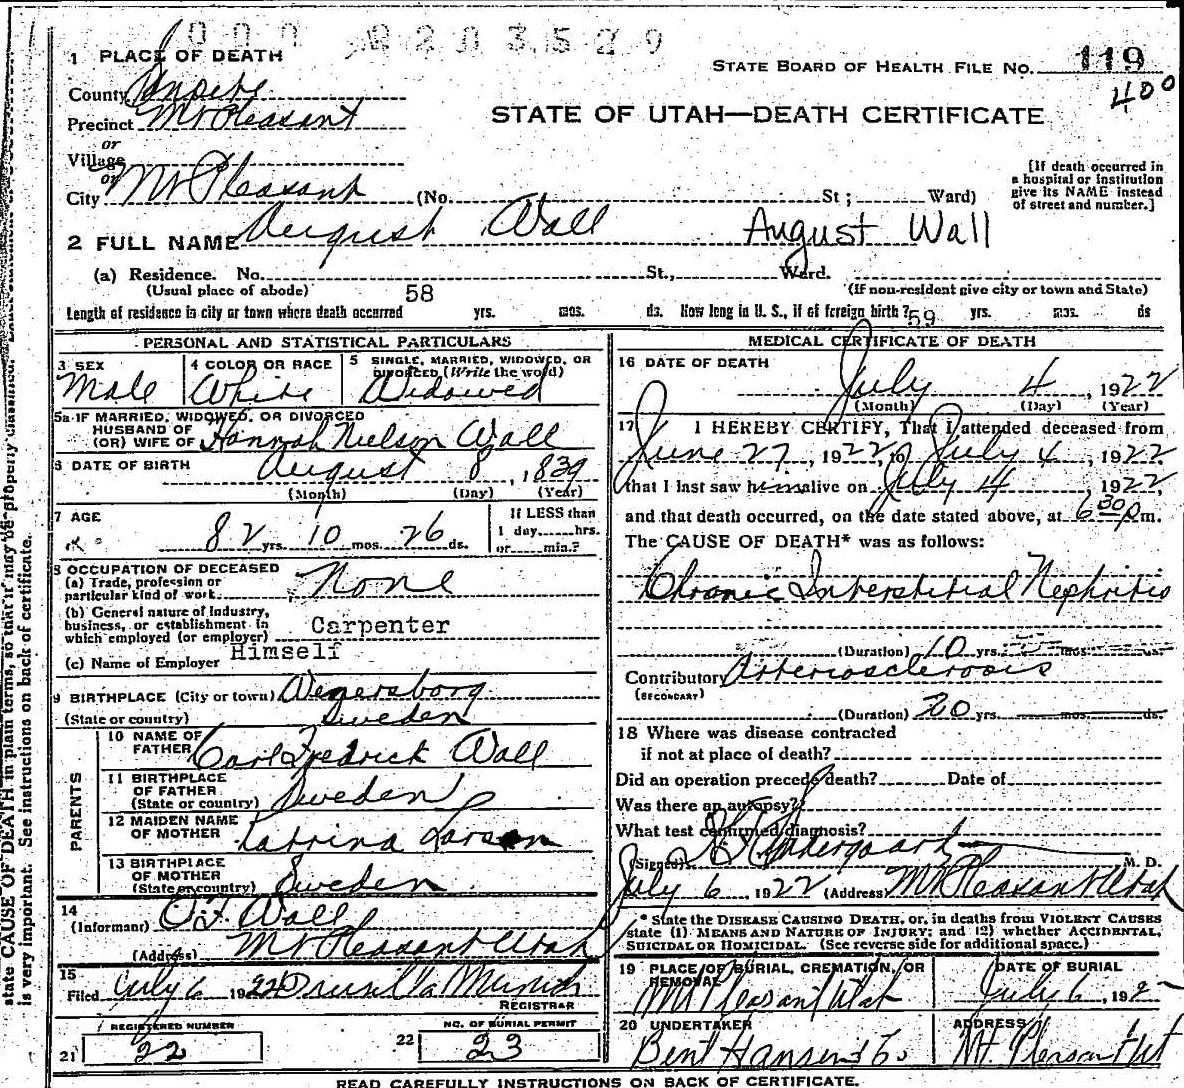 000 0203529
1 PLACE OF DEATH
STATE BOARD OF HEALTH FILE NO. 119
400
County Sanpete
Precinct Mt Pleasant
STATE OF UTAH—DEATH CERTIFICATE
or
Village
or
City Mt Pleasant (No. St; Ward)
[If death occurred in
a hospital or institution
give its NAME instead
of street and number.]
2 FULL NAME August Wall August Wall
(a) Residence. No. St., Ward.
(Usual place of abode) (If non-resident give city or town and State)
Length of residence in city or town where death occurred 58 yrs. mos. ds. How long in U. S., if of foreign birth? 59 yrs. mos. ds
PERSONAL AND STATISTICAL PARTICULARS
3 SEX Male
4 COLOR OR RACE White
5 SINGLE, MARRIED, WIDOWED, OR
DIVORCED (Write the word)
Widowed
5a IF MARRIED, WIDOWED, OR DIVORCED
HUSBAND OF
(OR) WIFE OF Hannah Nielson Wall
6 DATE OF BIRTH August 8, 1839
(Month) (Day) (Year)
7 AGE
82 yrs. 10 mos. 26 ds.
If LESS than
1 day hrs.
or min.?
8 OCCUPATION OF DECEASED
(a) Trade, profession or
particular kind of work None
(b) General nature of industry,
business, or establishment in
which employed (or employer) Carpenter
(c) Name of Employer Himself
9 BIRTHPLACE (City or town) Wenersborg
(State or country) Sweden
PARENTS
10 NAME OF
FATHER Carl Fredrick Wall
11 BIRTHPLACE
OF FATHER
(State or country) Sweden
12 MAIDEN NAME
OF MOTHER Katrina Larson
13 BIRTHPLACE
OF MOTHER
(State or country) Sweden
14
(Informant) O.F. Wall
(Address) Mt Pleasant Utah
15
Filed July 6 1922 Drusilla
REGISTRAR
REGISTERED NUMBER
21 22
NO. OF BURIAL PERMIT
22 23
MEDICAL CERTIFICATE OF DEATH
16 DATE OF DEATH
July 4, 1922
(Month) (Day) (Year)
17 I HEREBY CERTIFY, That I attended deceased from
June 27, 1922, to July 4, 1922
that I last saw him alive on July 4, 1922,
and that death occurred, on the date stated above, at 630 pm.
The CAUSE OF DEATH* was as follows:
Chronic Interstitial Nephritis
(Duration) 10 yrs. mos. ds.
Contributory Arteriosclerosis
(SECONDARY)
(Duration) 20 yrs. mos. ds.
18 Where was disease contracted
if not at place of death?
Did an operation precede death? Date of
Was there an autopsy?
What test confirmed diagnosis?
(Signed) M. D.
July 6, 1922 (Address) Mt Pleasant Utah
* State the DISEASE CAUSING DEATH, or, in deaths from VIOLENT CAUSES
state (1) MEANS AND NATURE OF INJURY; and (2) whether ACCIDENTAL,
SUICIDAL OR HOMICIDAL. (See reverse side for additional space.)
19 PLACE OF BURIAL, CREMATION, OR
REMOVAL
Mt Pleasant Utah
DATE OF BURIAL
July 6, 192
20 UNDERTAKER
Bent Hansen & Co
ADDRESS
Mt. Pleasant Ut
READ CAREFULLY INSTRUCTIONS ON BACK OF CERTIFICATE.
state CAUSE OF DEATH in plain terms, so that it may be properly classified.
is very important. See instructions on back of certificate.